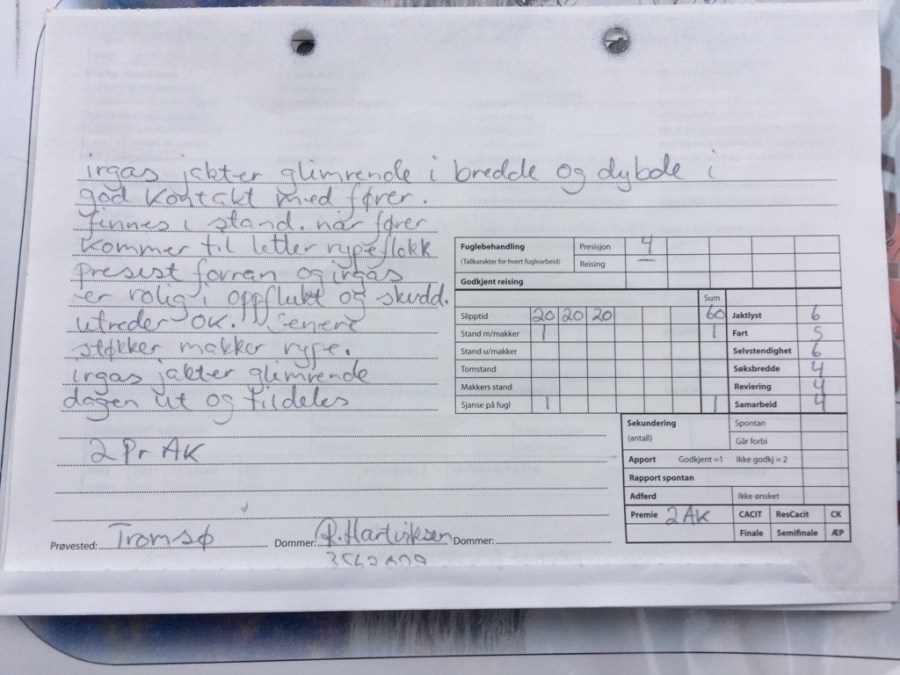 irgas jakter glimrende i bredde og dybde i
god kontakt med fører.
finnes i stand. når fører
kommer til letter rypeflokk
presist forran og irgas
er rolig i oppflukt og skudd.
utreder OK. Senere
støkker makker rype.
irgas jakter glimrende
dagen ut og tildeles
2 Pr AK
Fuglebehandling Presisjon 4
(Tallkarakter for hvert fuglearbeid) Reising
Godkjent reising
Sum
Slipptid 20 20 20 60 Jaktlyst 6
Stand m/makker 1 1 Fart 5
Stand u/makker Selvstendighet 6
Tomstand Søksbredde 4
Makkers stand Reviering 4
Sjanse på fugl 1 1 Samarbeid 4
Sekundering Spontan
(antall) Går forbi
Apport Godkjent =1 Ikke godkj = 2
Rapport spontan
Adferd Ikke ønsket
Premie 2 AK CACIT ResCacit CK
Finale Semifinale ÆP
Prøvested: Tromsø Dommer: R. Hartviksen Dommer: